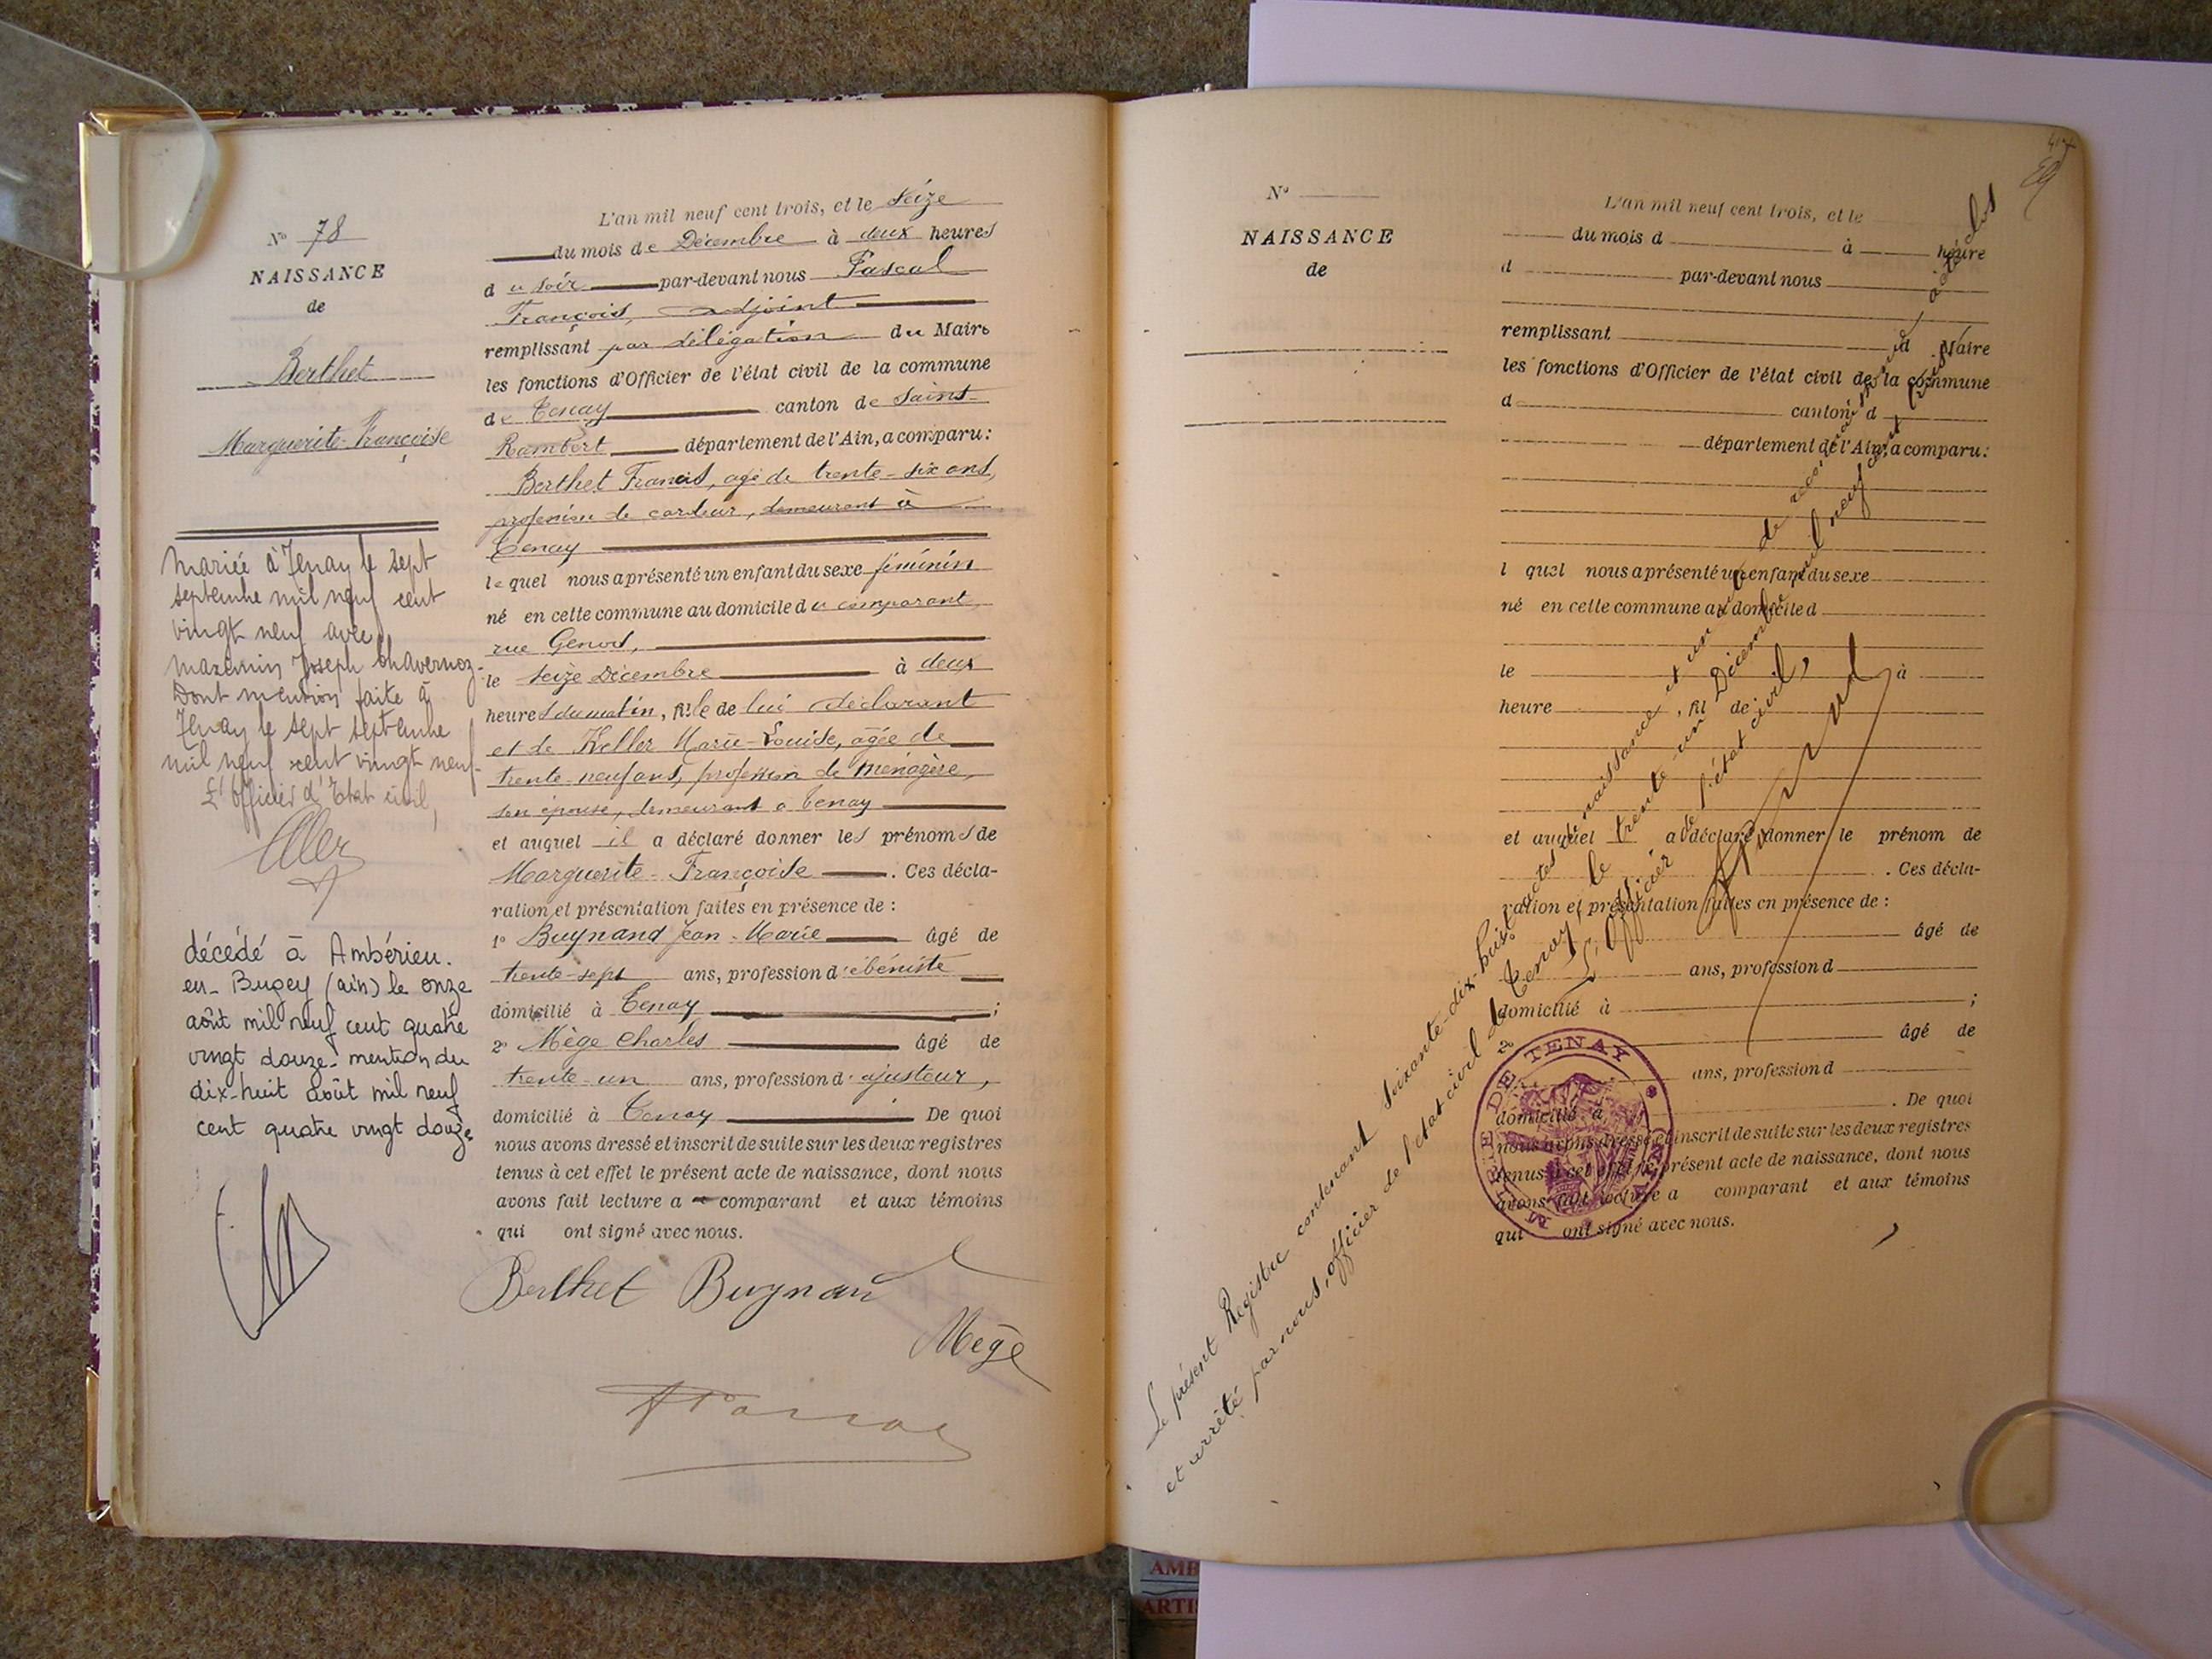 N° 78
NAISSANCE
de
Berthet
Marguerite-Françoise
Mariée à Tenay le sept
septembre mil neuf cent
vingt neuf avec
Maximin Joseph Chavernoz.
Dont mention faite à
Tenay le sept septembre
mil neuf cent vingt neuf.
L'officier d'Etat civil,
décédé à Ambérieu.
en-Bugey (ain) le onze
août mil neuf cent quatre
vingt douze. mention du
dix-huit août mil neuf
cent quatre vingt douze
L'an mil neuf cent trois, et le seize
du mois de Décembre à deux heures
du soir par-devant nous Pascal
François, adjoint
remplissant par délégation du Maire
les fonctions d'Officier de l'état civil de la commune
de Tenay canton de Saint-
Rambert département de l'Ain, a comparu:
Berthet Francis, agé de trente-six ans,
profession de cardeur, demeurant à
Tenay
lequel nous a présenté un enfant du sexe féminin
né en cette commune au domicile du comparant,
rue Genod,
le seize Décembre à deux
heures du matin, fille de lui déclarant
et de Keller Marie-Louise, agée de
trente-neuf ans, profession de ménagère,
son épouse, demeurant à Tenay
et auquel il a déclaré donner les prénoms de
Marguerite-Françoise. Ces décla-
ration et présentation faites en présence de :
1° Buynand Jean-Marie âgé de
trente-sept ans, profession d'ébéniste
domicilié à Tenay ;
2° Mège Charles âgé de
trente-un ans, profession d'ajusteur,
domicilié à Tenay De quoi
nous avons dressé et inscrit de suite sur les deux registres
tenus à cet effet le présent acte de naissance, dont nous
avons fait lecture a comparant et aux témoins
qui ont signé avec nous.
Berthet Buynand
Mège
N°
NAISSANCE
de
L'an mil neuf cent trois, et le
du mois d à heure
d par-devant nous
remplissant d Maire
les fonctions d'Officier de l'état civil de la commune
d canton d
département de l'Ain, a comparu:
l quel nous a présenté un enfant du sexe
né en cette commune au domicile d
le à
heure , fil de
et auquel a déclaré donner le prénom de
. Ces décla-
ration et présentation faites en présence de :
âgé de
ans, profession d
domicilié à ;
2° âgé de
ans, profession d
domicilié à . De quoi
nous avons dressé et inscrit de suite sur les deux registres
tenus à cet effet le présent acte de naissance, dont nous
avons fait lecture a comparant et aux témoins
qui ont signé avec nous.
Le présent Registre contenant soixante-dix-huit actes de naissance et un de a été clos
et arrêté par nous, officier de l'état civil de Tenay, le trente-un Décembre mil neuf cent trois
L'Officier de l'état civil,
MAIRIE DE TENAY (AIN)
AMB
ARTIS